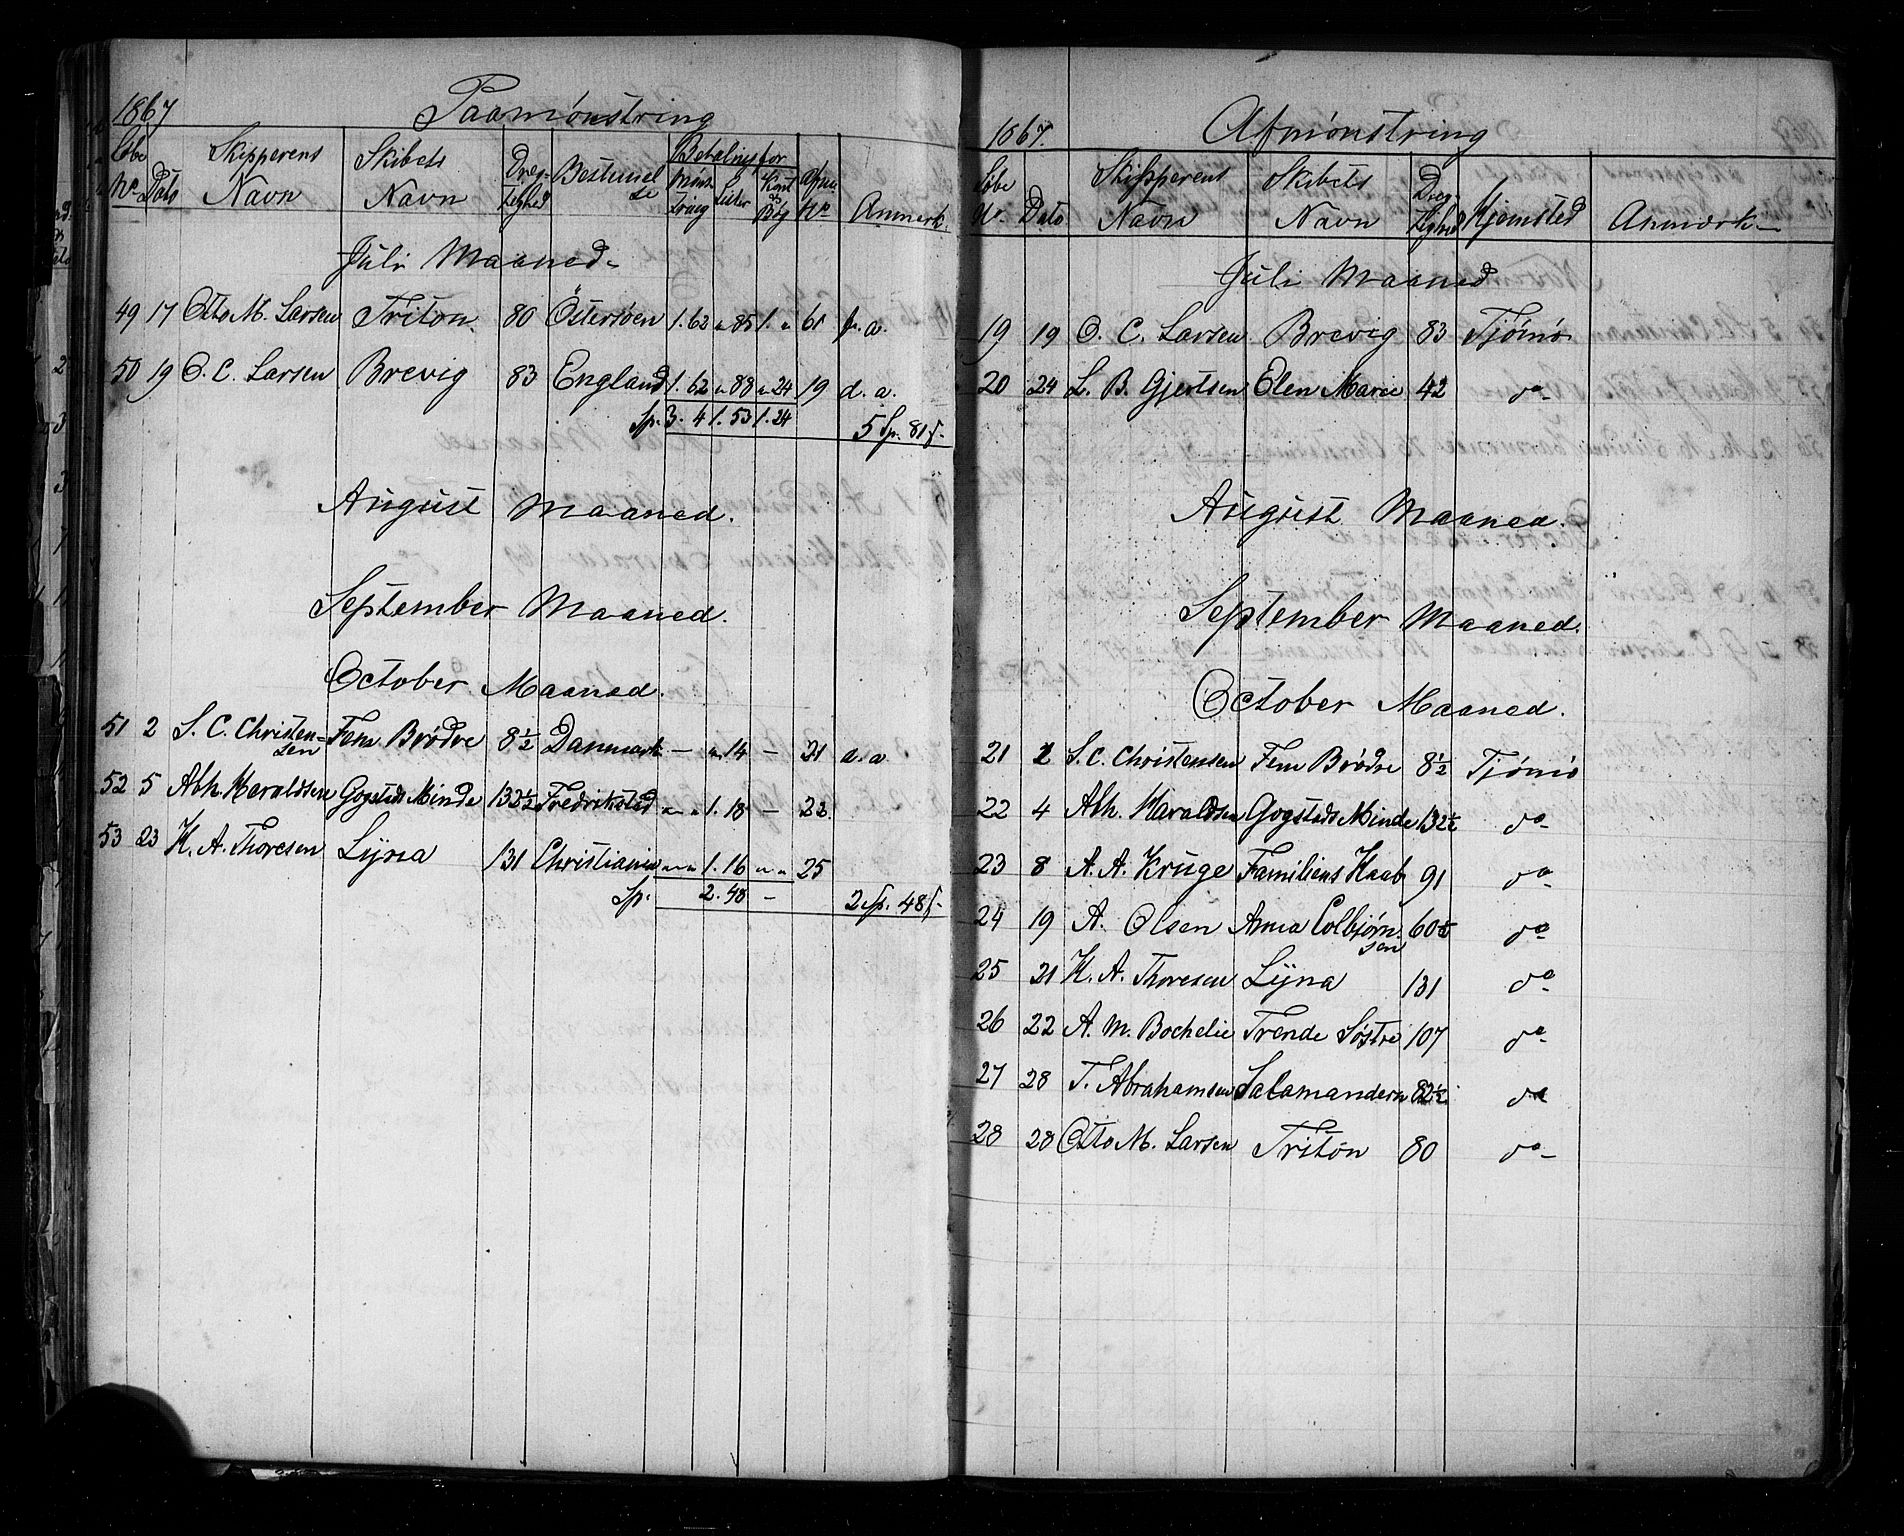 1867 Paamønstring
Løbe No Dato Skipperens Navn Skibets Navn Dræg-tighed Bestemmel se Betaling for Mønstring Lister Kont og Bøg Afm. No Anmærk.
Juli Maaned
49 17 Otto M. Larsen Triton 80 Östersøen 1. 62 " 85 1. " 61 p. a.
50 19 O. C. Larsen Brevig 83 England 1. 62 " 88 " 24 19 d. a.
Sp. 3. 4 1. 53 1. 24 5 Sp. 81 ſ.
August Maaned.
September Maaned.
October Maaned.
51 2 S. C. Christen=sen Fem Brødre 8½ Danmark — " 14 — 21 a. a
52 5 Abh. Haraldsen Gogstads Minde 132½ Fredrikstad " " 1. 18 — 22.
53 23 K. A. Thoresen Lyna 131 Christiania " " 1. 16 " " 25
Sp. 2. 48 — 2 Sp. 48 ſ.
1867. Afmønstring
Løbe No. Dato Skipperens Navn Skibets Navn Dræg tighed Hjemsted Anmærk
Juli Maaned
19 19 O. C. Larsen Brevig 83 Tjømø
20 24 L. B. Gjertsen Elen Marie 42 do
August Maaned.
September Maaned.
October Maaned.
21 2 S. C. Christensen Fem Brødre 8½ Tjømø
22 4 Abh. Haraldsen Gogstads Minde 132½ do
23 8 A. A. Kruge Familiens Haab 91 do
24 19 A. Olsen Anna Colbjørnsen 60½ do
25 21 K. A. Thoresen Lyna 131 do
26 22 A. M. Bochelie Trende Søstre 107 do
27 28 T. Abrahamsen Salamanderen 82½ do
28 28 Otto M. Larsen Triton 80 do